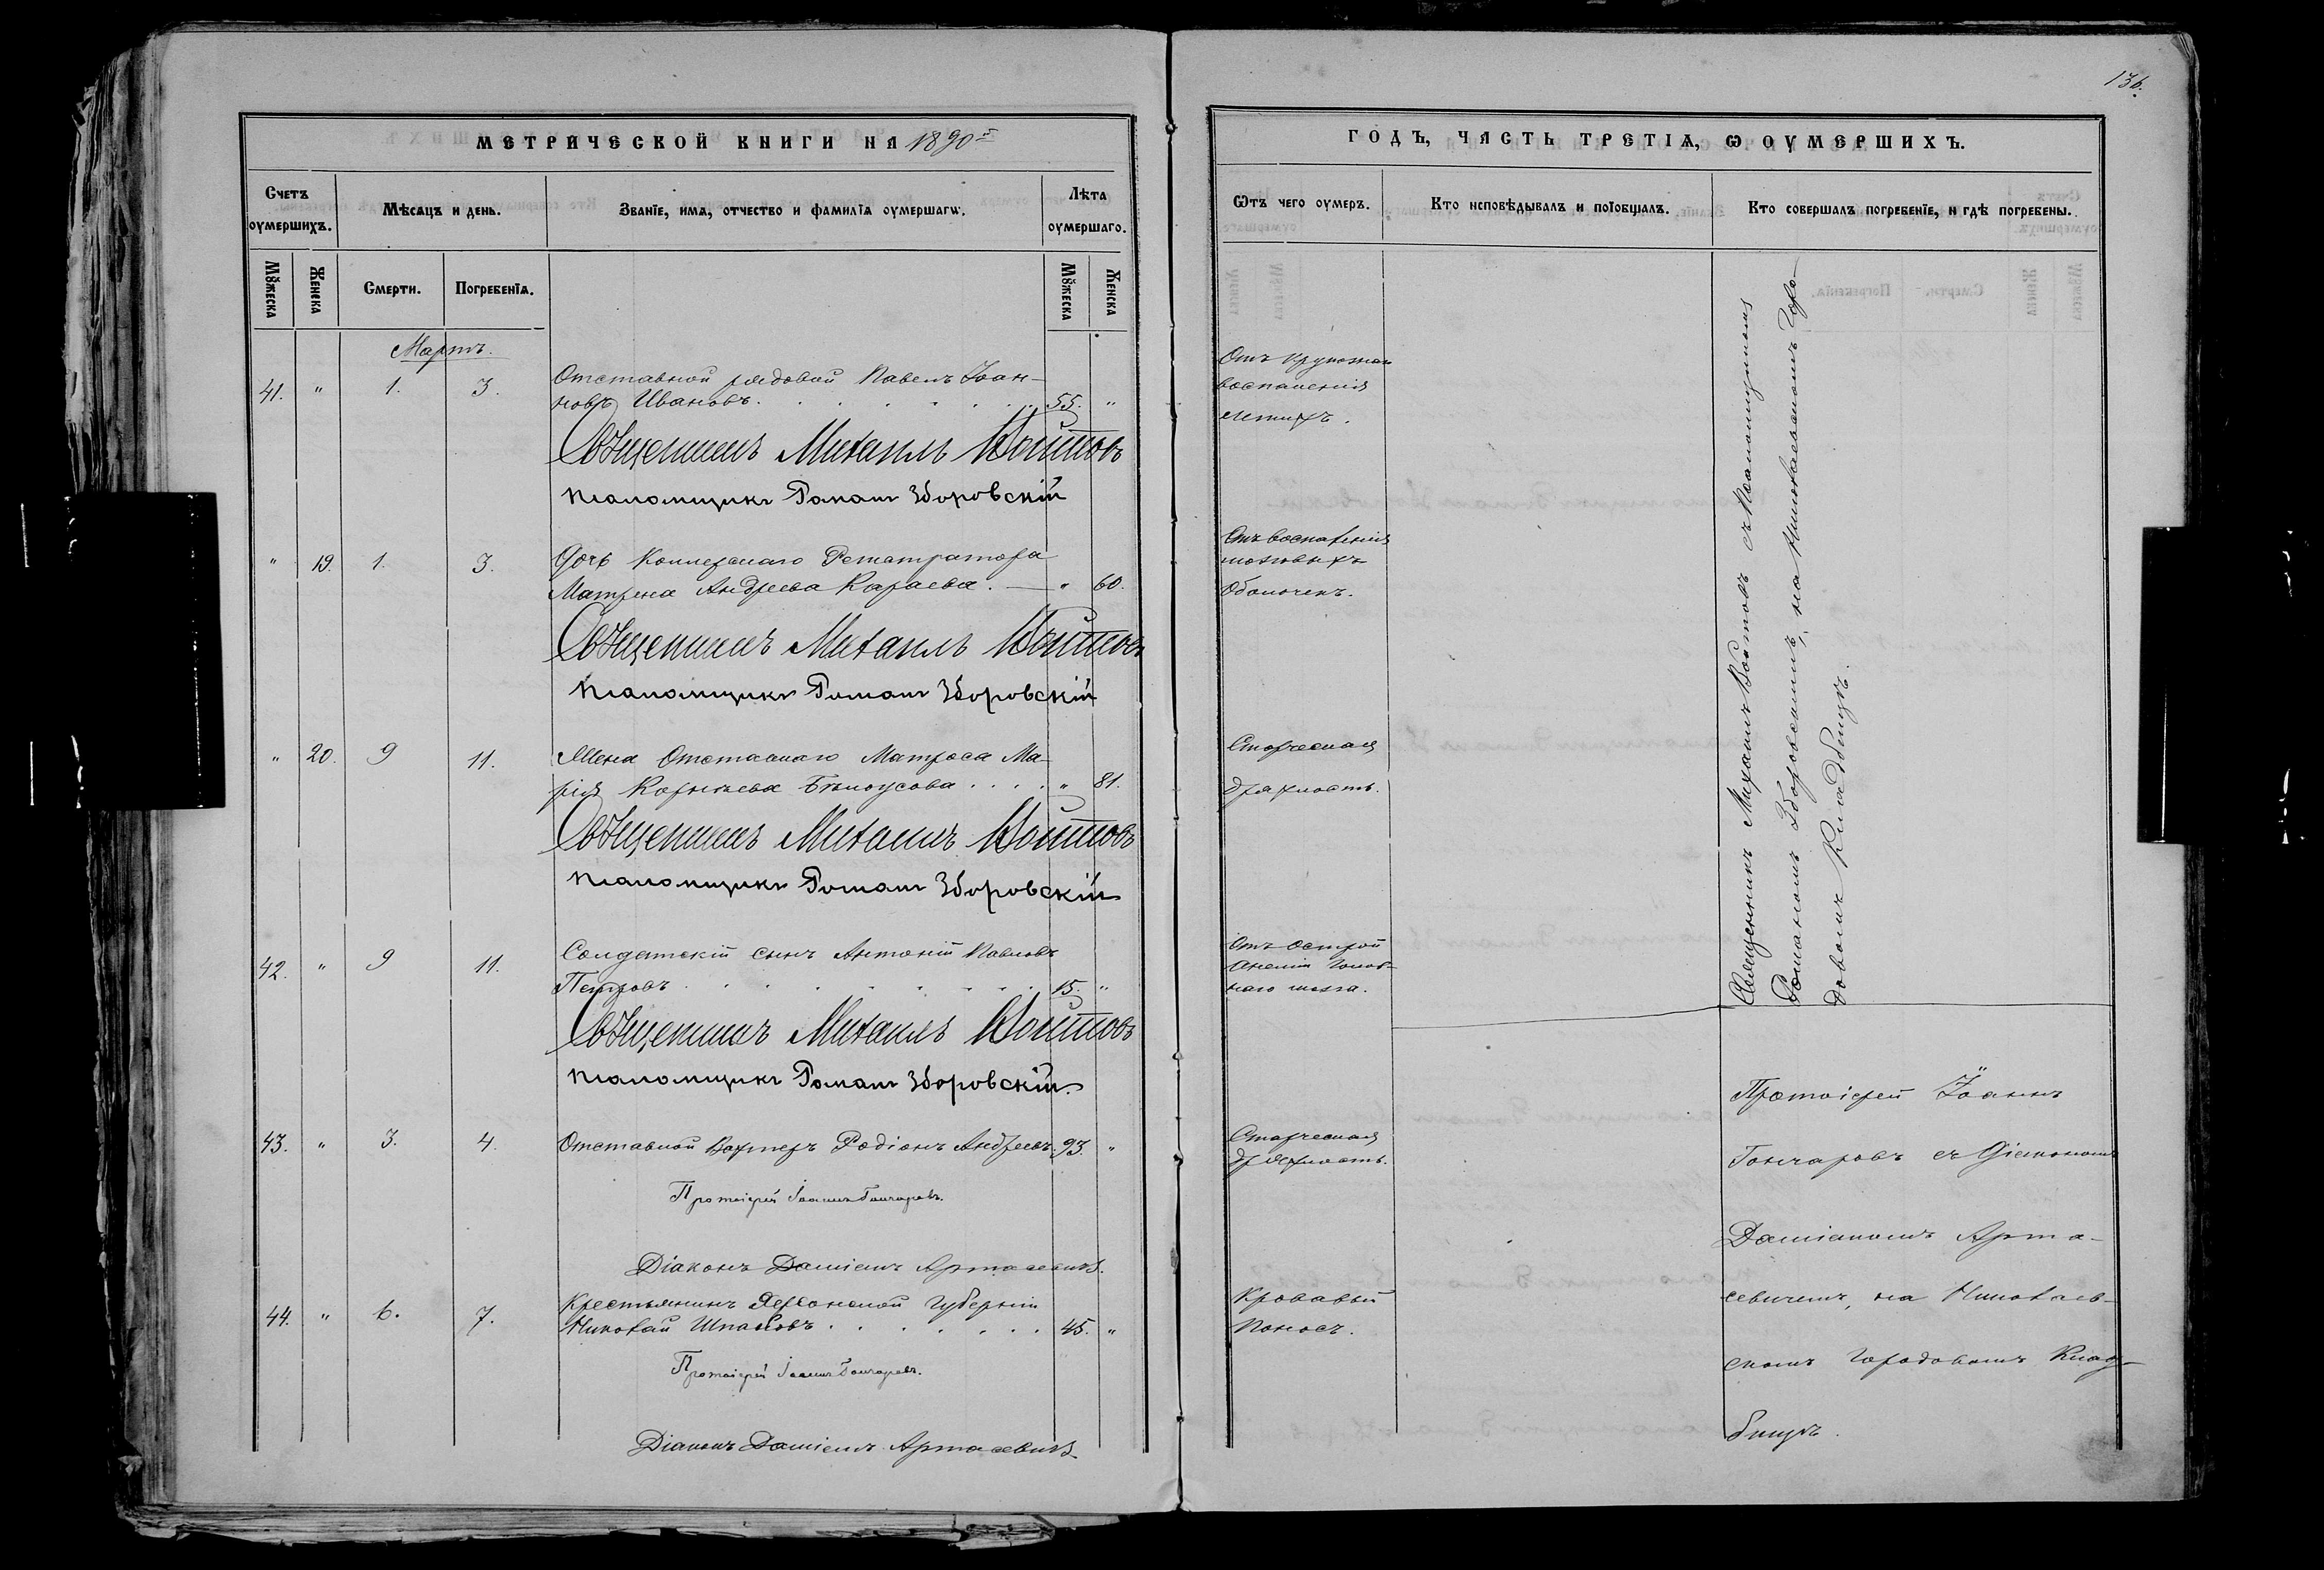 136.
МЕТРИЧЕСКОЙ КНИГИ НА 1890й
Счетъ оумершихъ.
Мѣсяцъ и день.
Званїе, имя, отчество и фамилїя оумершагѡ.
Лѣта оумершаго.
Мꙋжеска
Женска
Смерти.
Погребенїя.
Мꙋжеска
Женска
Мартъ.
41. " 1. 3. Отставной рядовой Павелъ Іоан-
новъ Ивановъ. 55. "
Священникъ Михаилъ Войтовъ
Псаломщикъ Романъ Зборовскій
" 19. 1. 3. Дочь Коллежскаго Регистратора
Матрена Андреева Караева. " 60.
Священникъ Михаилъ Войтовъ
Псаломщикъ Романъ Зборовскій
" 20. 9 11. Жена Отставнаго Матроса Ма-
рія Корнѣева Бѣлоусова . . . . " 81.
Священникъ Михаилъ Войтовъ
Псаломщикъ Романъ Зборовскій
42. " 9 11. Солдатскій сынъ Антоній Павловъ
Петровъ 15. "
Священникъ Михаилъ Войтовъ
Псаломщикъ Романъ Зборовскій.
43. " 3. 4. Отставной Вахтеръ Родіонъ Андреевъ. 93. "
Протоіерей Іоаннъ Гончаровъ.
Діаконъ Даміанъ Артасевичъ.
44. " 6. 7. Крестьянинъ Херсонской Губерніи
Николай Шпаковъ . . . . . . . 45. "
Протоіерей Іоаннъ Гончаровъ.
Діаконъ Даміанъ Артасевичъ
ГОДЪ, ЧАСТЬ ТРЕТІЯ, Ѡ ОУМЕРШИХЪ.
Ѿтъ чего оумеръ.
Кто исповѣдывалъ и пοїобщалъ.
Кто совершалъ погребенїе, и гдѣ погребены.
Отъ крупознаго
воспаленія
легкихъ.
Отъ воспаленія
мозговыхъ
Оболочекъ.
Старческая
дряхлость.
Отъ острой
Анеміи Голов-
наго мозга.
Старческая
дряхлость.
Кровавый
Поносъ.
Священникъ Михаилъ Войтовъ съ Псаломщикомъ
Романомъ Зборовскимъ, на Николаевскомъ Горо-
довомъ Кладбищѣ.
Протоіерей Іоаннъ
Гончаровъ съ Діакономъ
Даміаномъ Арта-
севичемъ, на Николаев-
скомъ Городовомъ Клад-
бищѣ.